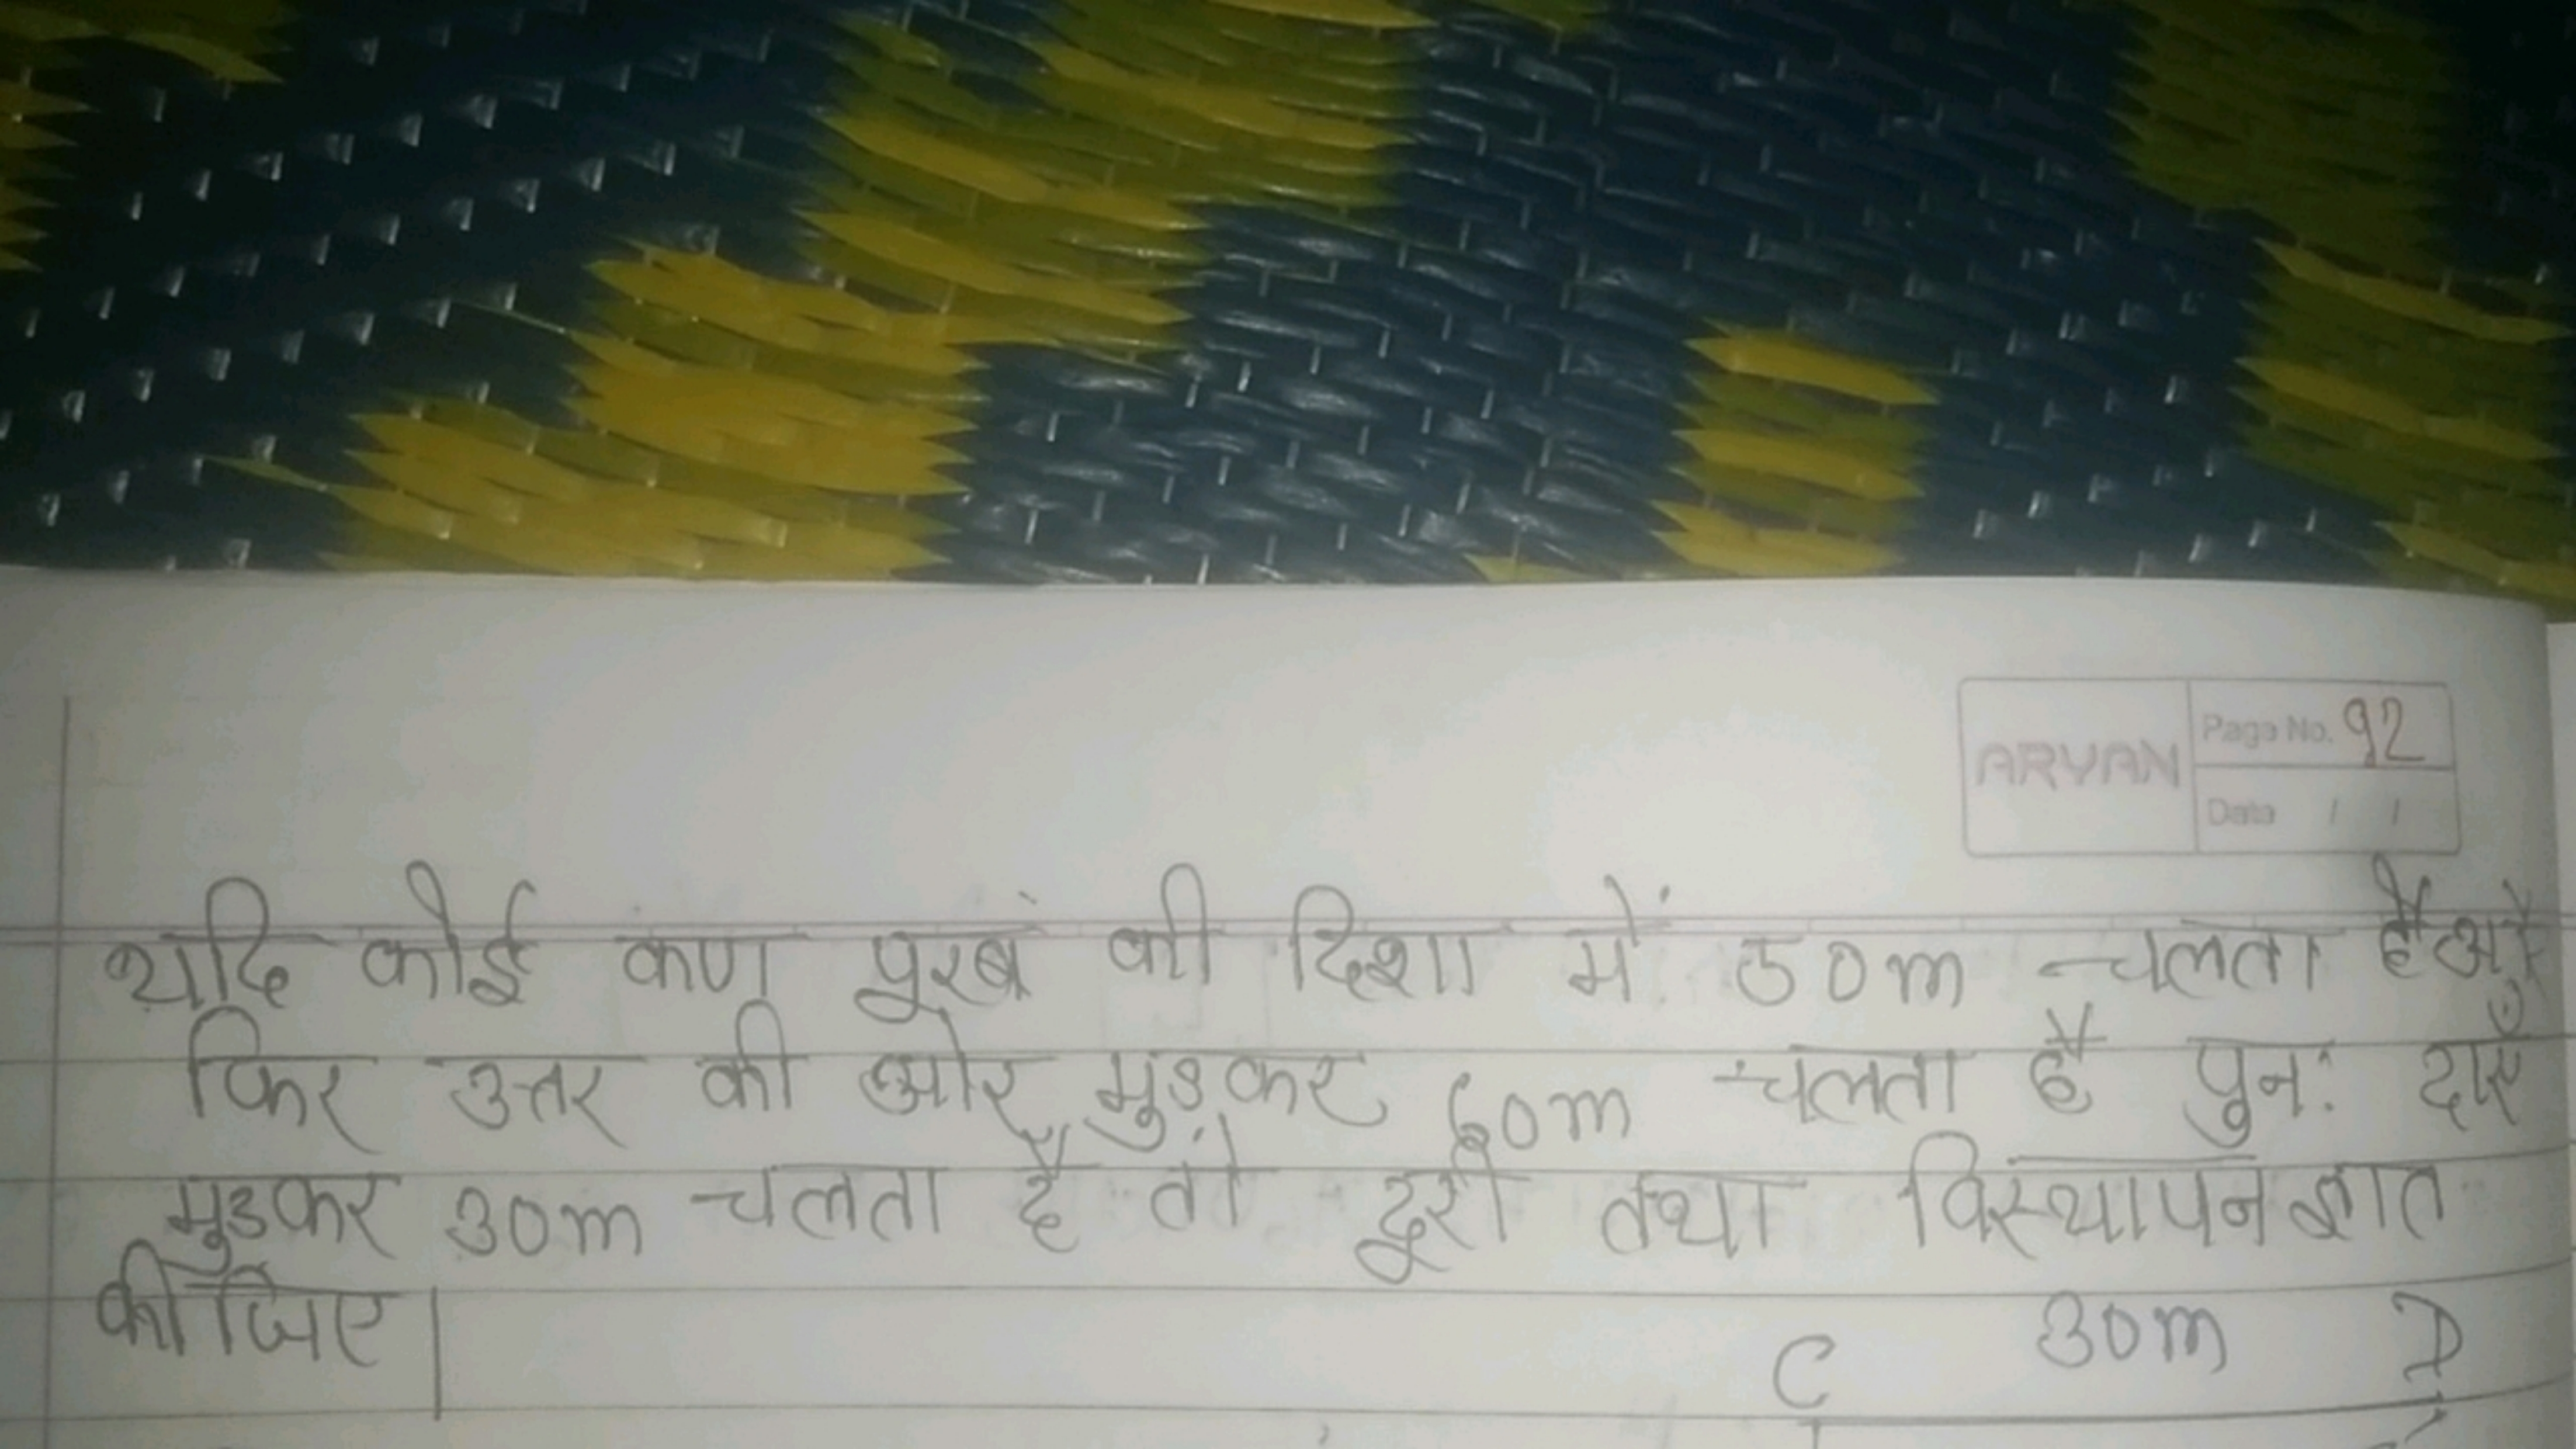 ARYAN
Page No. 92
Date / /
यदि कोई कण पूरब की दिशा में 50m चलता है और
फिर उत्तर की ओर मुडकर 60m चलता है पुनः दाएँ
मुडकर 30m चलता है तो दूरी तथा विस्थापन ज्ञात
कीजिए।
C 30m D